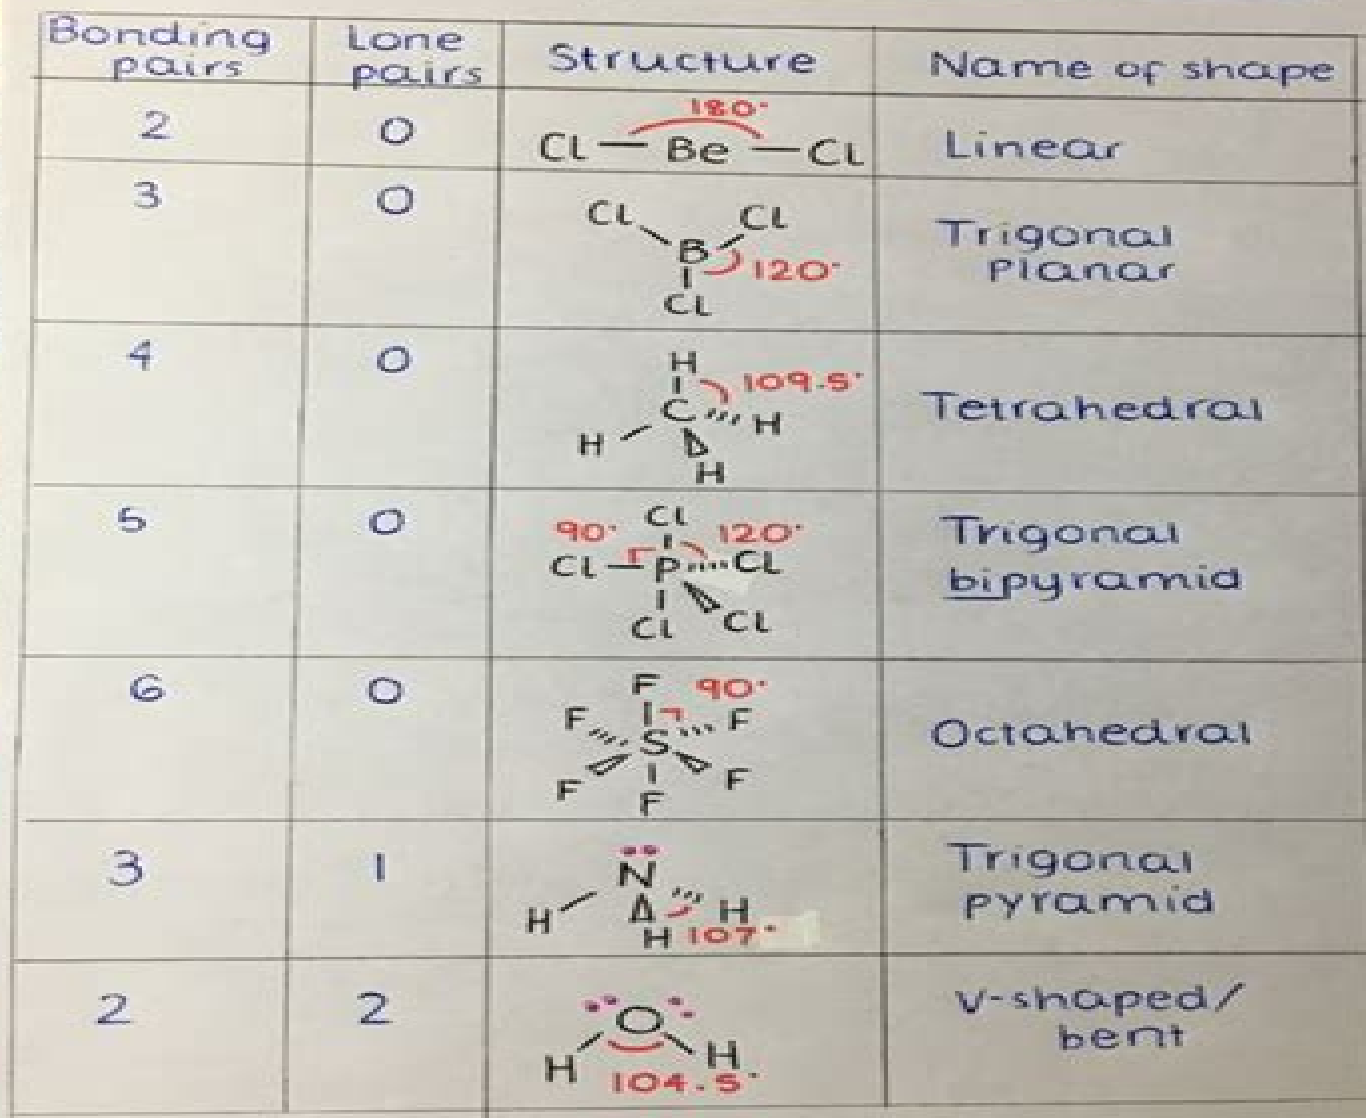 Bonding pairs
Lone pairs
Structure
Name of shape
2
0
180°
Cl Be Cl
Linear
3
0
Cl Cl
B
120°
Cl
Trigonal
Planar
4
0
H
109.5°
C
H
H
H
Tetrahedral
5
0
Cl
90° 120°
Cl P Cl
Cl Cl
Trigonal
bipyramid
6
0
F 90°
F F
S
F F
F
Octahedral
3
1
N
H H
H 107°
Trigonal
pyramid
2
2
O
H H
104.5°
V-shaped/
bent